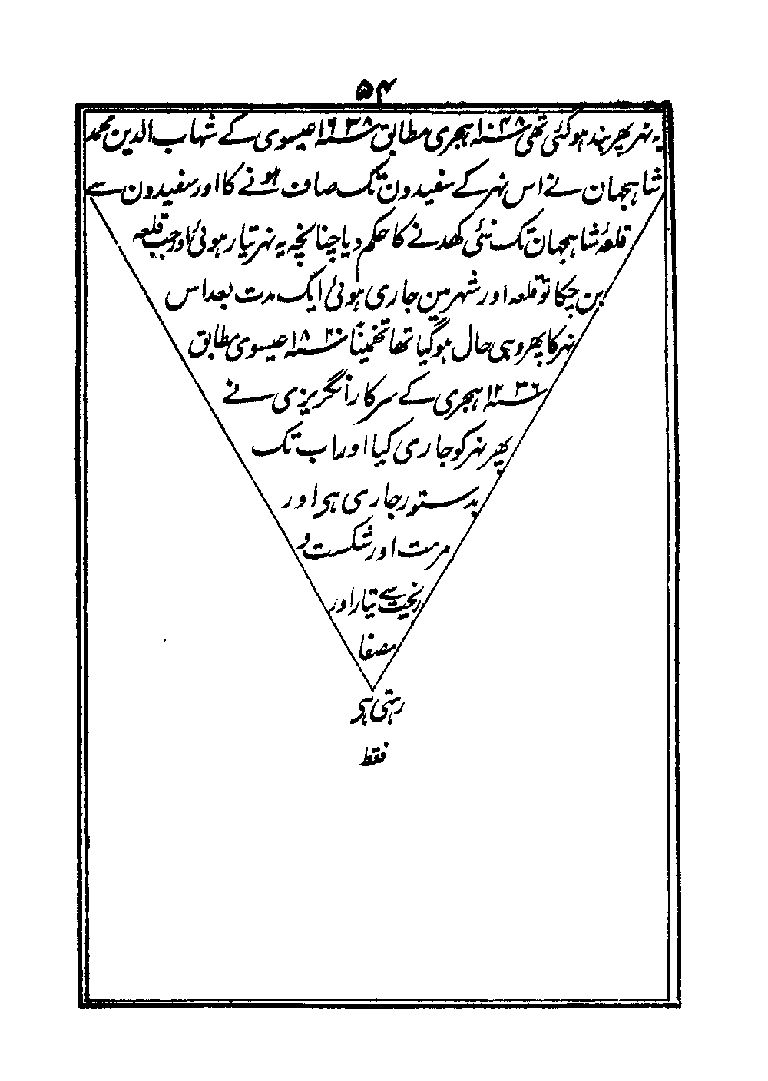 ۵۴
یہ نہر پھر بند ہوگئی تھی سنہ ۱۰۴۸ ہجری مطابق سنہ ۱۶۳۸ عیسوی کے شہاب الدین محمد
شاہجہان نے اس نہر کے سفیدون تک صاف ہونے کا اور سفیدون سے
قلعۂ شاہجہان تک نئی کھدنے کا حکم دیا چنانچہ یہ نہر تیار ہوئی اور جب قلعہ
بن چکا تو قلعہ اور شہر مین جاری ہوئی ایک مدت بعد اس
نہر کا پھر وہی حال ہوگیا تھا تخمیناً سنہ ۱۸۲۰ عیسوی مطابق
سنہ ۱۲۳۶ ہجری کے سرکار انگریزی نے
پھر نہر کو جاری کیا اور اب تک
بدستور جاری ہی اور
مرمت اور شکست و
ریخت سے تیار اور
مصفا
رہتی ہی
فقط